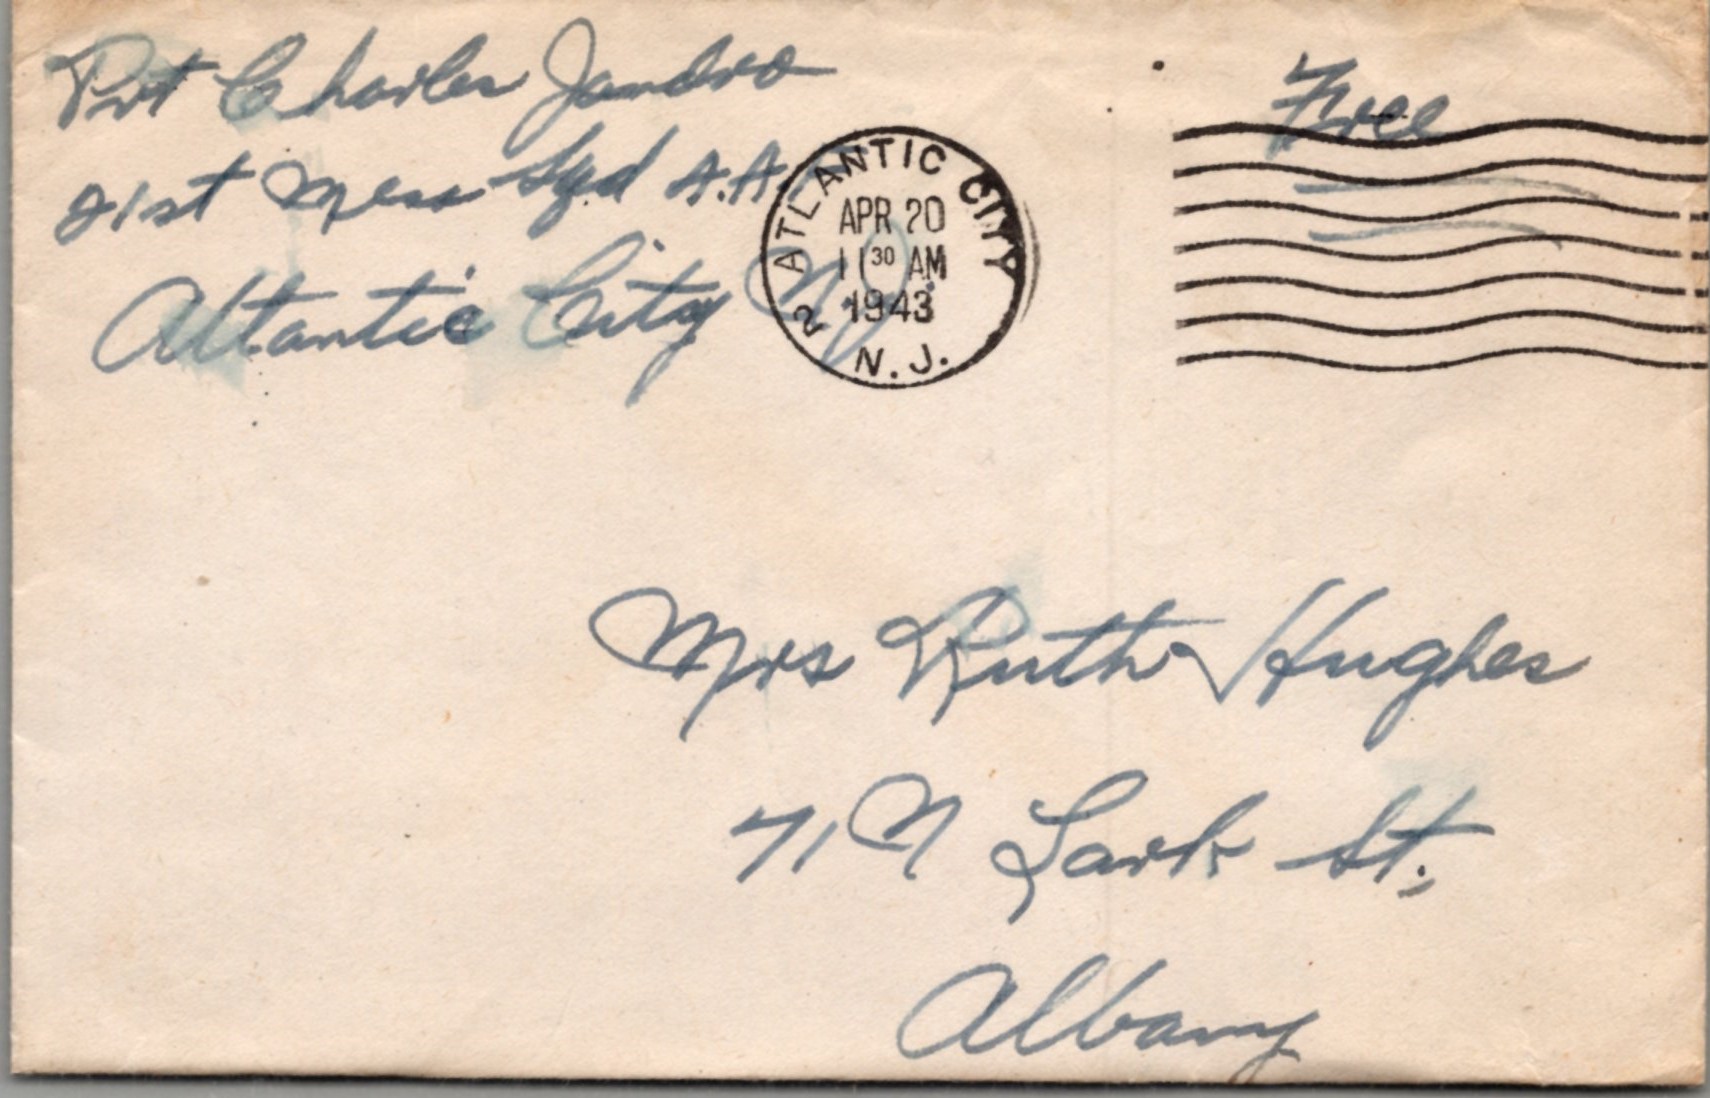 Pvt Charles Jandro
21st Mess Sqd A.A.
Atlantic City N.J.
ATLANTIC CITY
APR 20
11 30 AM
1943
2
N.J.
Free
Mrs Ruth Hughes
71 N Lark St.,
Albany